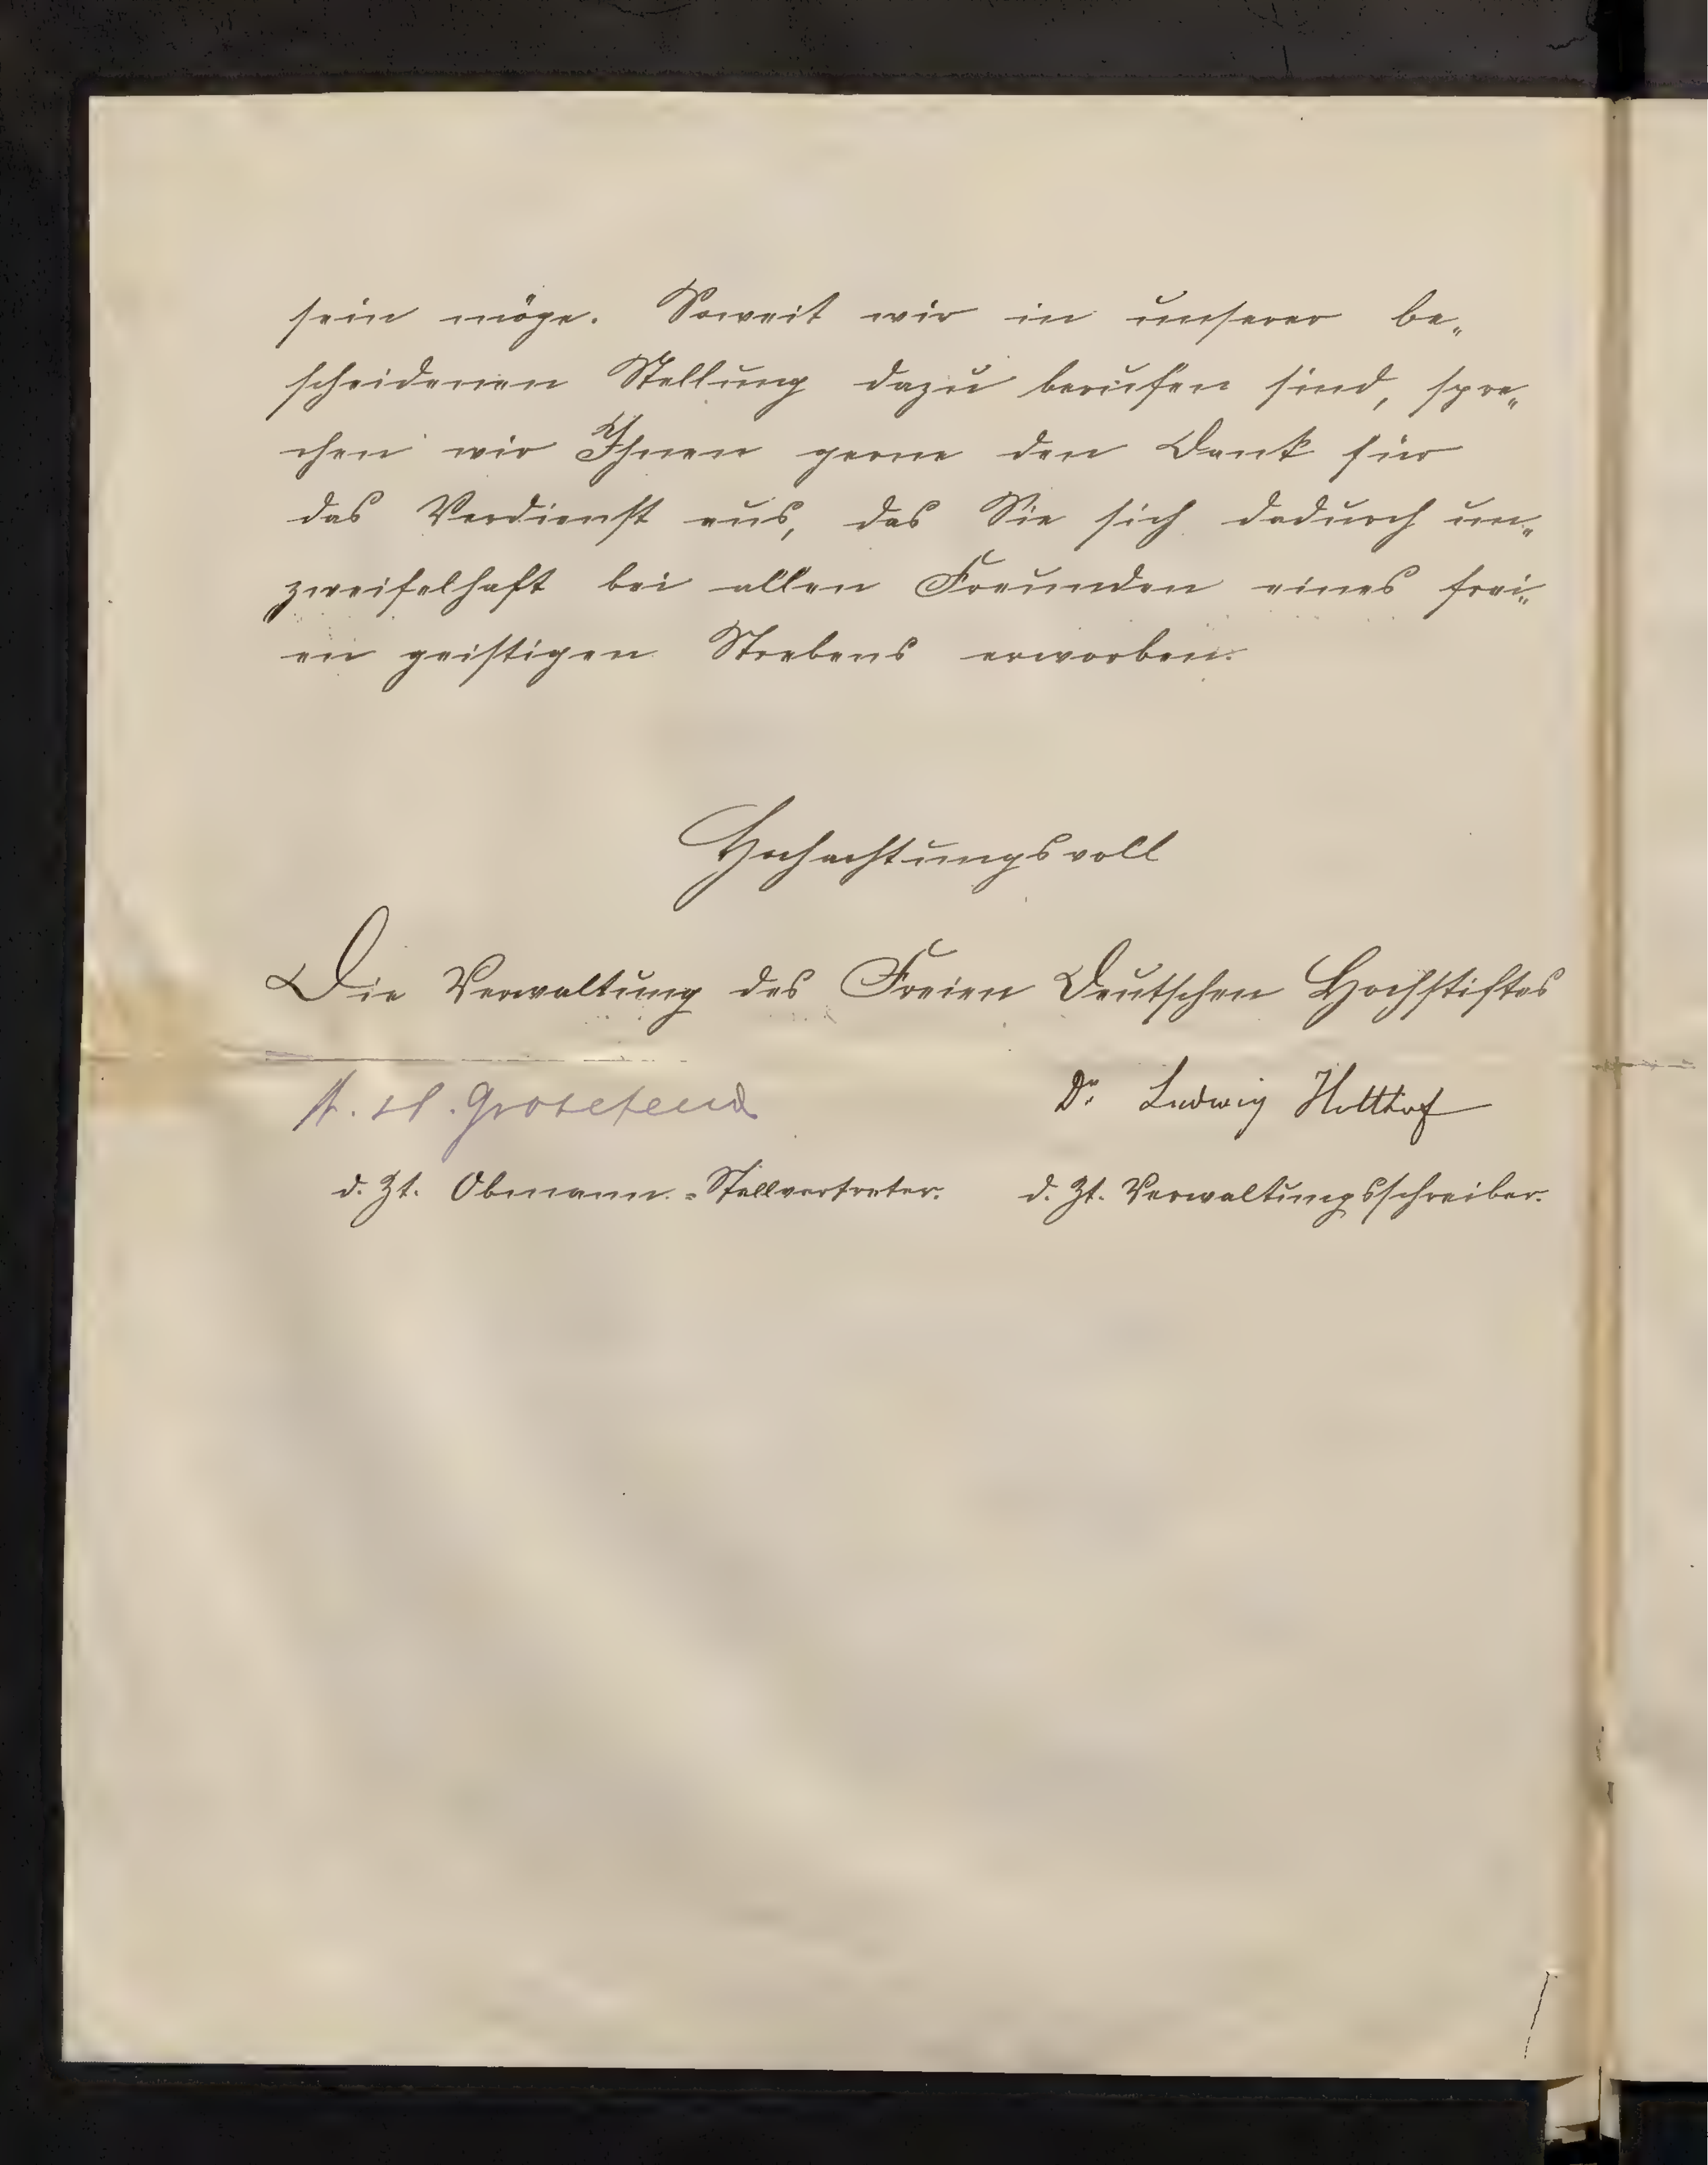 sein möge. Soweit wir in unserer be„
scheidenen Stellung dazu berufen sind, spre„
chen wir Ihnen gerne den Dank für
das Verdienst aus, das Sie sich dadurch un„
zweifelhaft bei allen Freunden eines frei„
en geistigen Strebens erworben.
Hochachtungsvoll
Die Verwaltung des Freien Deutschen Hochstiftes
Grotefend Dr Ludwig Holthof
d. Zt. Obmann-Stellvertreter. d. Zt. Verwaltungsschreiber.